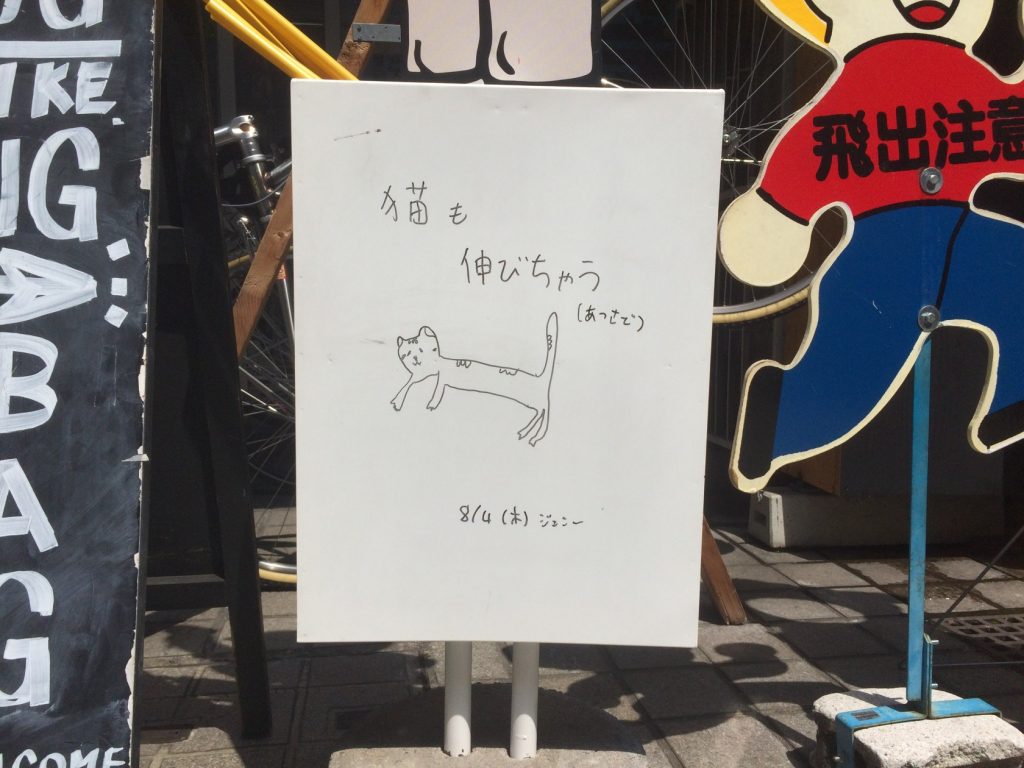 IKE.
UG
BAG
猫も
伸びちゃう
(あつさで)
8/4 (木) ジェニー
飛出注意